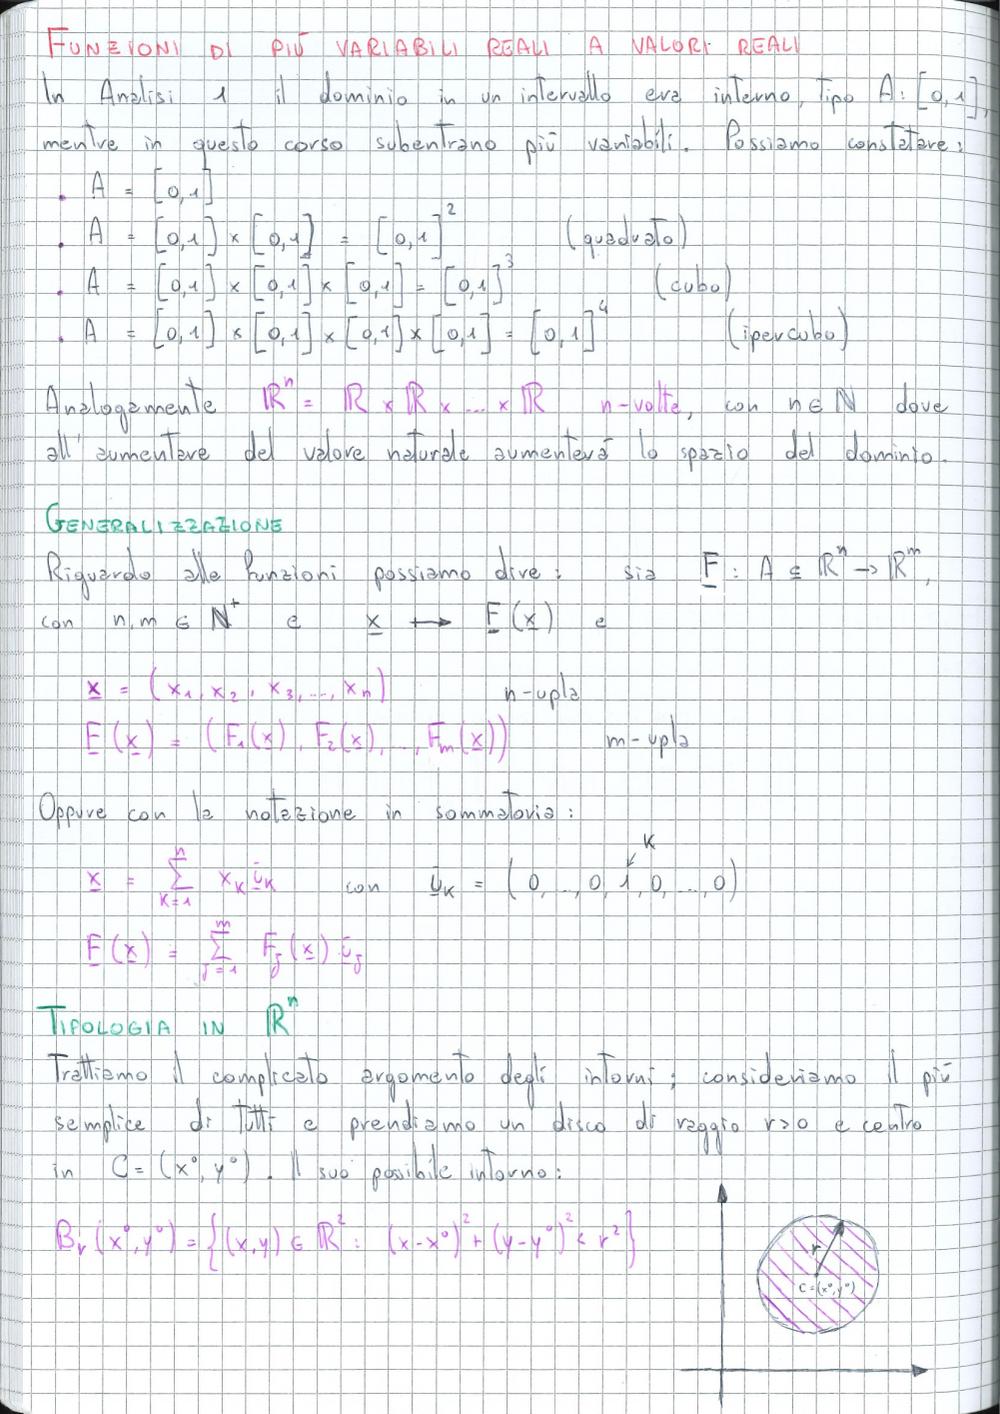 FUNZIONI DI PIÙ VARIABILI REALI A VALORI REALI
In Analisi 1 il dominio in un intervallo era interno, tipo A: [0,1],
mentre in questo corso subentrano più variabili. Possiamo constatare:
. A = [0,1]
. A = [0,1] × [0,1] = [0,1]² (quadrato)
. A = [0,1] × [0,1] × [0,1] = [0,1]³ (cubo)
. A = [0,1] × [0,1] × [0,1] × [0,1] = [0,1]⁴ (ipercubo)
Analogamente ℝⁿ = ℝ × ℝ × ... × ℝ n-volte, con n ∈ ℕ dove
all'aumentare del valore naturale aumenterà lo spazio del dominio.
GENERALIZZAZIONE
Riguardo alle funzioni possiamo dire: sia F : A ⊆ ℝⁿ → ℝᵐ,
con n,m ∈ ℕ⁺ e x ↦ F(x) e
x = (x₁, x₂, x₃, ..., xₙ) n-upla
F(x) = (F₁(x), F₂(x), ..., Fₘ(x)) m-upla
Oppure con la notazione in sommatoria:
K
x = Σ_{K=1}^{n} x_K u_K con u_K = (0, ..., 0, 1, 0, ..., 0)
F(x) = Σ_{J=1}^{m} F_J(x) u_J
TIPOLOGIA IN ℝⁿ
Trattiamo il complicato argomento degli intorni; consideriamo il più
semplice di tutti e prendiamo un disco di raggio r>0 e centro
in C = (x°, y°). Il suo possibile intorno:
B_r(x°, y°) = {(x,y) ∈ ℝ² : (x-x°)² + (y-y°)² < r²}
r
C=(x°,y°)